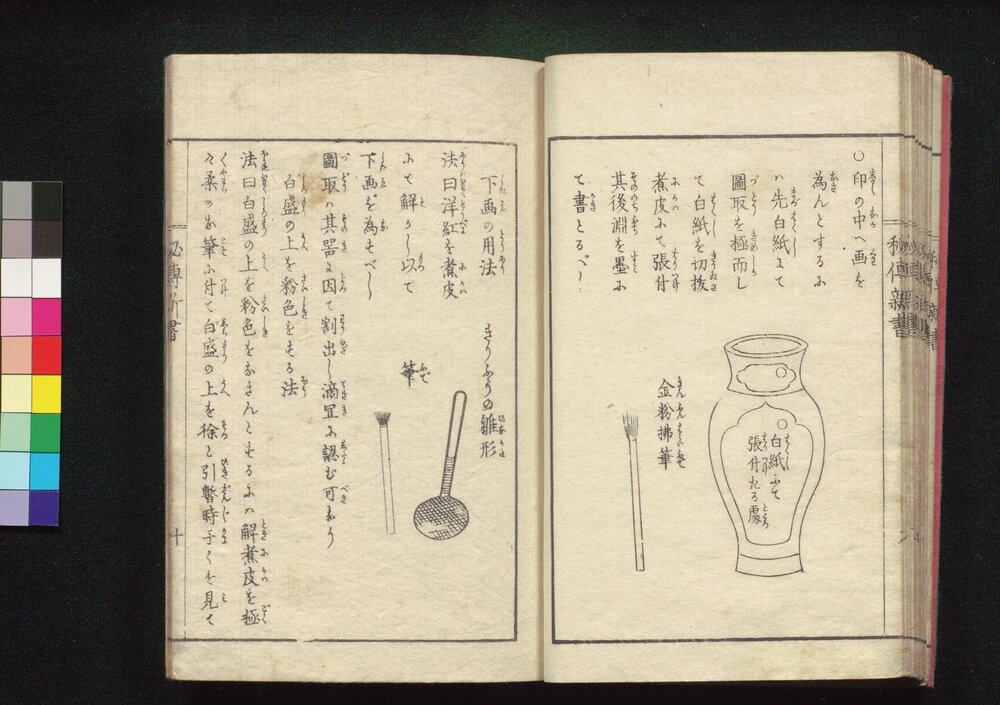 ○印の中へ画を
為んとするに
ハ先白紙にて
圖取を極而し
て白紙を切抜
煮皮にて張付
其後淵を墨に
て書とるべし
白紙にて
張付たる處
金粉拂筆
下画の用法
法曰洋紅を煮皮
にて解かし以て
下画を為すべし
きりふりの雛形
筆
圖取ハ其器に因て割出し適宜に認む可なり
白盛の上を粉色をする法
法曰白盛の上を粉色をなさんとするにハ解煮皮を極
く柔かな筆に付て白盛の上を徐々引暫時すくを見て
秘傳新書
十
秘傳新書